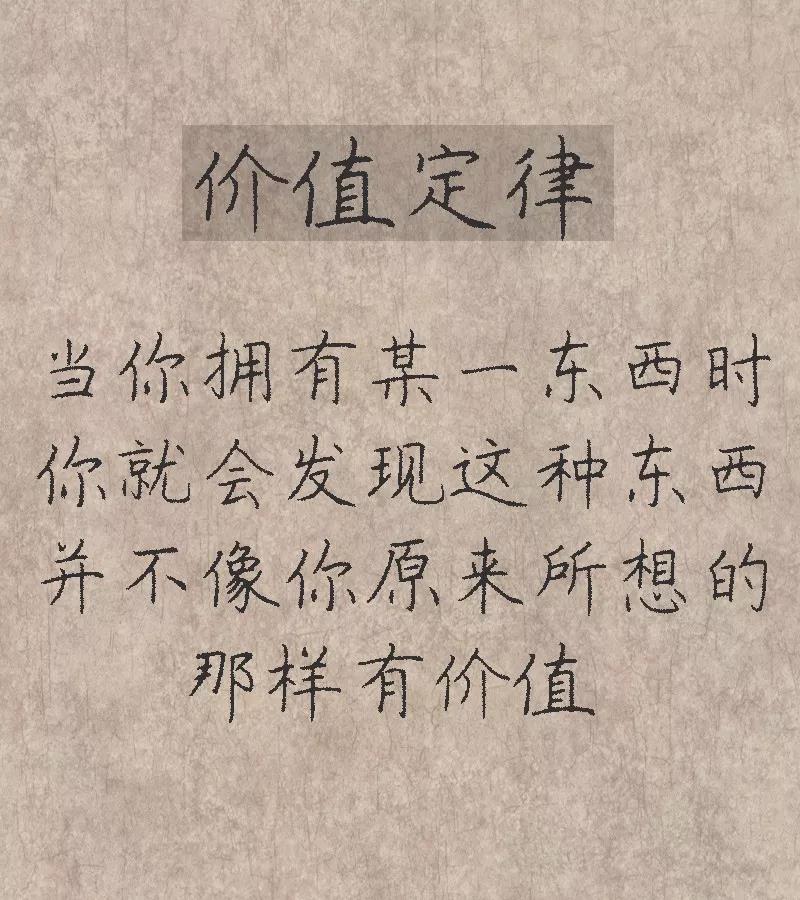 价值定律
当你拥有某一东西时
你就会发现这种东西
并不像你原来所想的
那样有价值